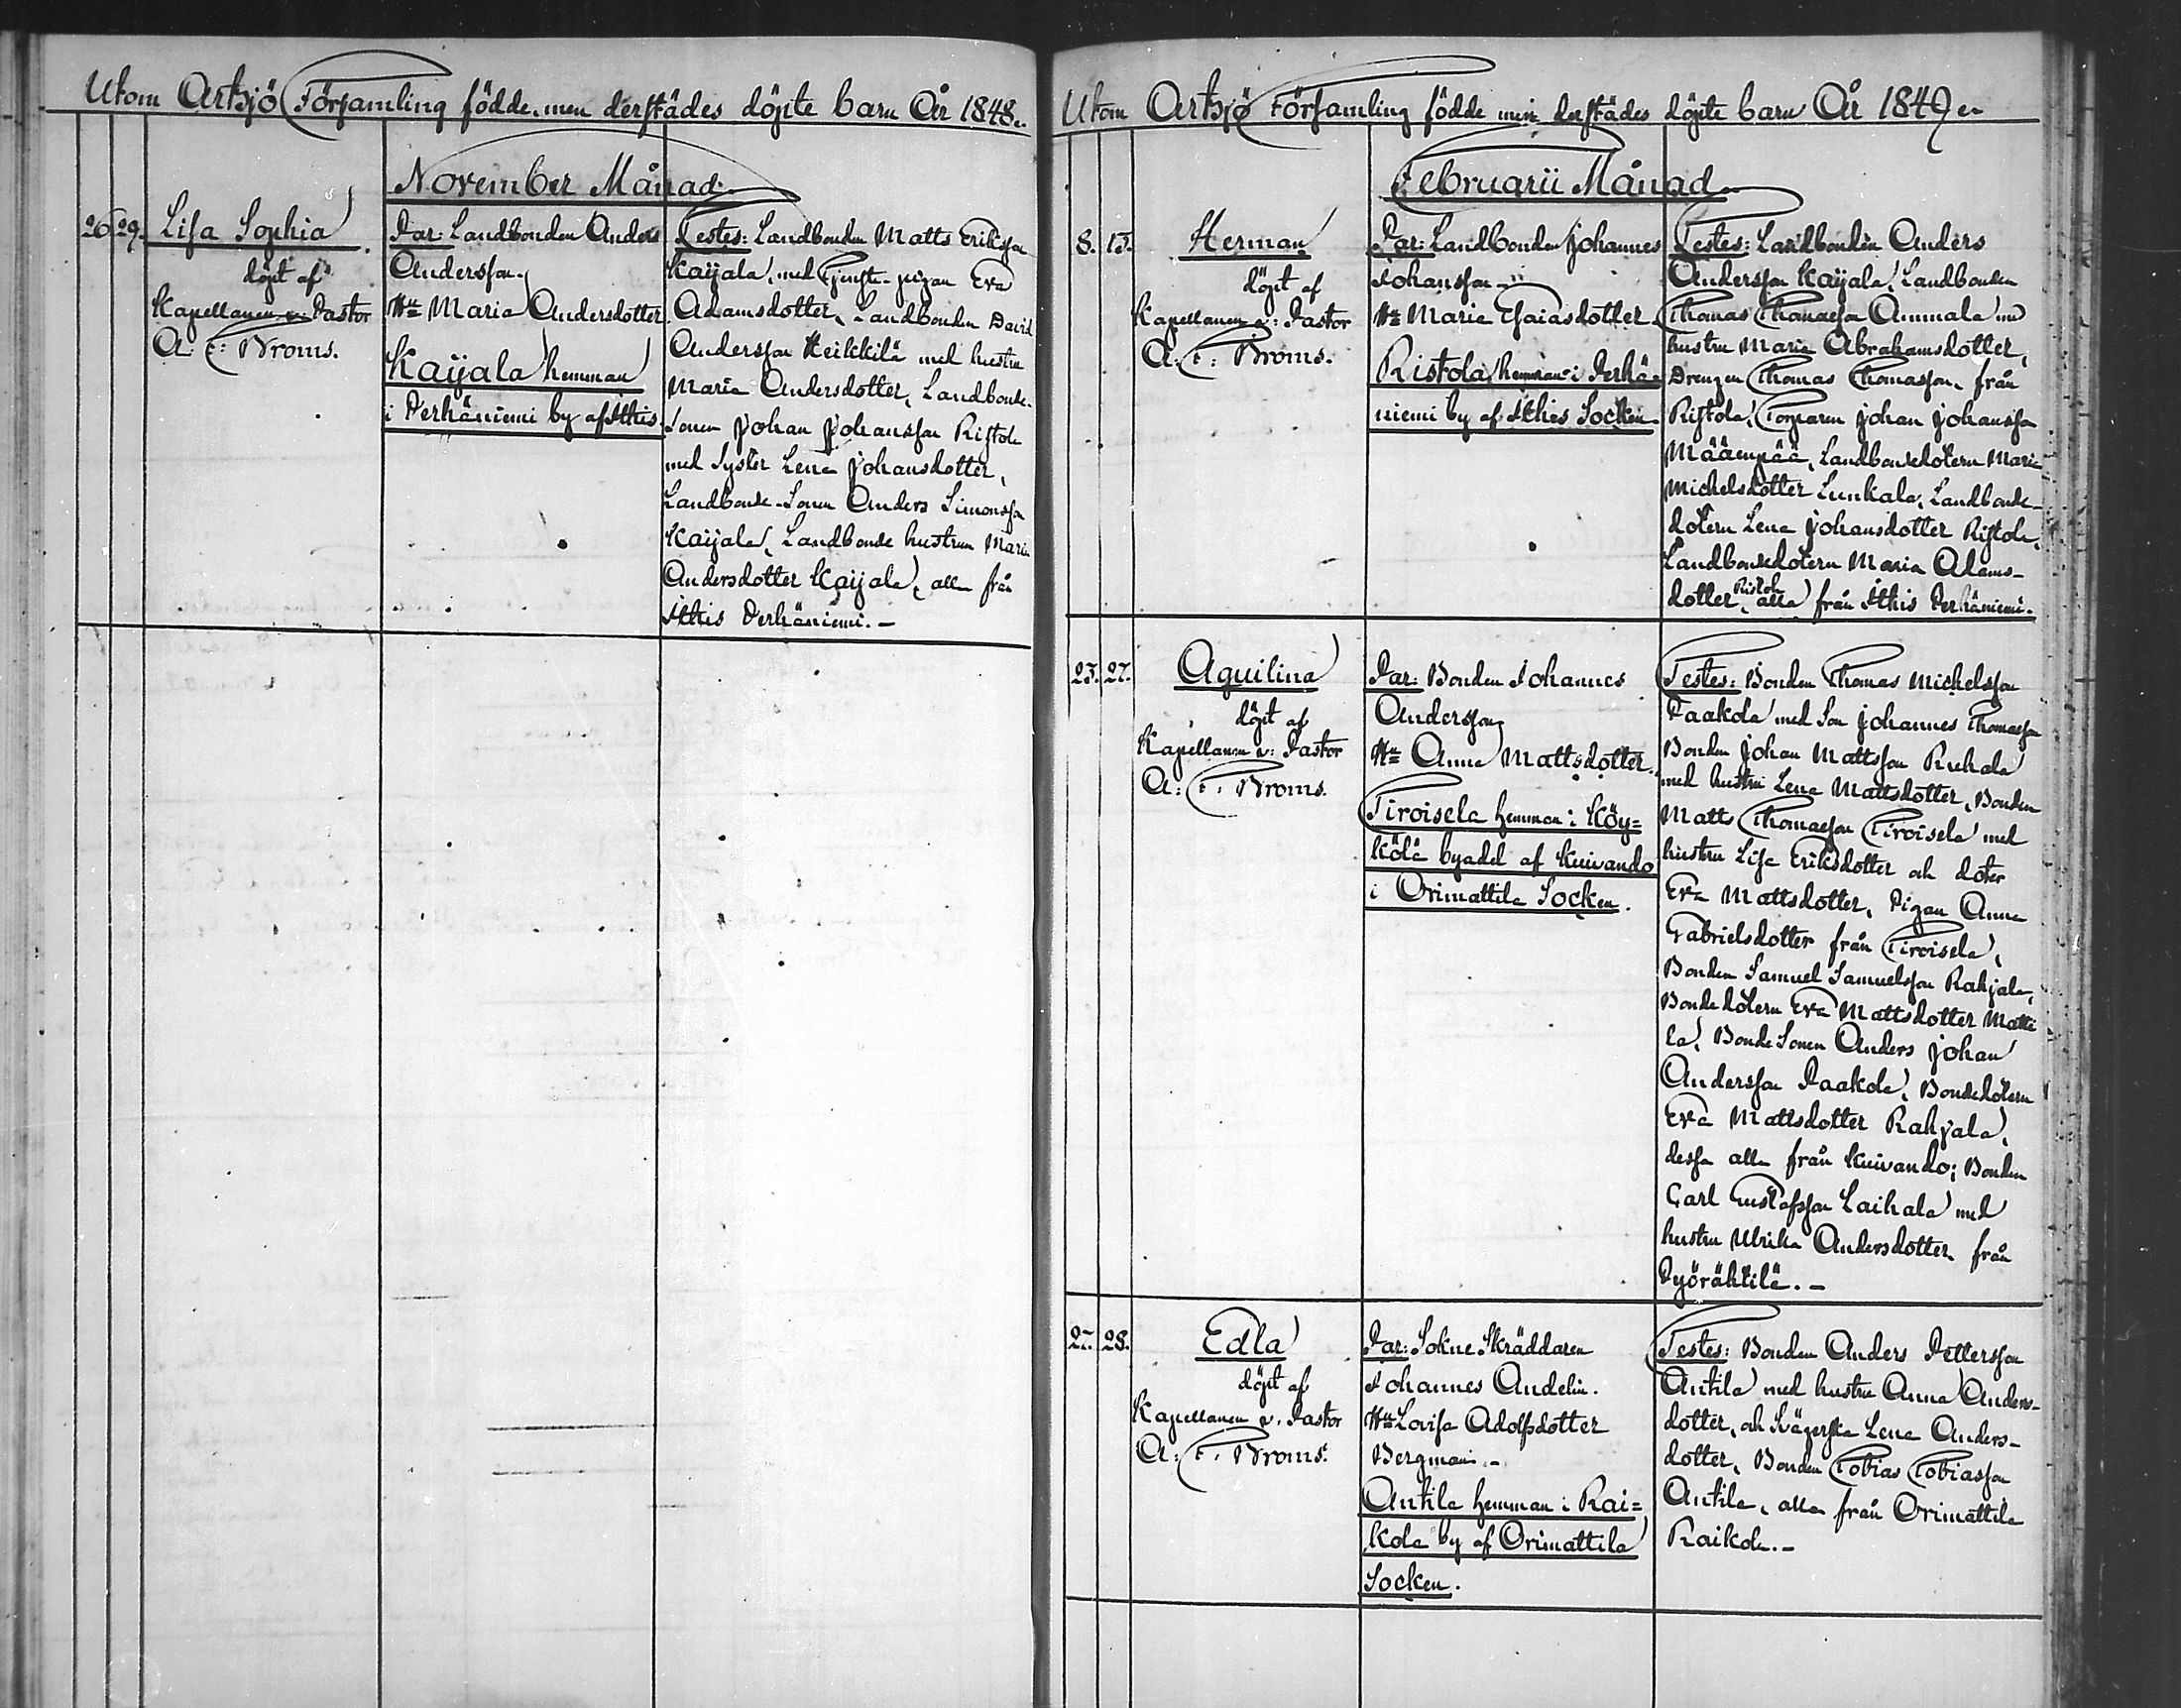 Utom Artsjö Församling födde men derstädes döpte barn År 1848.
November Månad
26. 29. Lisa Sophia
döpt af
Kapellanen v: Pastor
A: F: Broms.
Par: Landbonden Anders
Andersson.
Hu Maria Andersdotter
Kaijala hemman
i Perhäniemi by af Ithis.
Testes: Landbonden Matts Eriksson
Kaijala, med Tjenste-pigan Eva
Adamsdotter, Landbonden David
Andersson Heikkilä med hustru
Maria Andersdotter, Landbonde-
Sonen Johan Johansson Ristola
med Syster Lena Johansdotter,
Landbonde-Sonen Anders Simonsson
Kaijala, Landbonde hustrun Maria
Andersdotter Kaijala, alla från
Ithis Perhäniemi.-
Utom Artsjö Församling födde men derstädes döpte barn År 1849
Februarii Månad
8. 15. Herman
döpt af
Kapellanen v: Pastor
A: F: Broms.
Par: Landbonden Johannes
Johansson
Hu Maria Esaiasdotter.
Ristola, hemman i Perhä-
niemi by af Ithis Socken.
Testes: Landbonden Anders
Andersson Kaijala, Landbonden
Thomas Thomasson Ammala med
hustru Maria Abrahamsdotter,
Drengen Thomas Thomasson från
Ristola, Torparen Johan Johansson
Määenpää, Landbondedotern Maria
Michelsdotter Lunkala, Landbonde-
dotern Lena Johansdotter Ristola,
Landbondedotern Maria Adams-
dotter Ristola, alla från Ithis Perhäniemi.
25. 27. Aquilina
döpt af
Kapellanen v: Pastor
A: F: Broms.
Par: Bonden Johannes
Andersson
Hu Anna Mattsdotter.
Tiroisela hemman i Köy=
kölä byadel af Kuivando
i Orimattila Socken.
Testes: Bonden Thomas Michelsson
Paakola med Son Johannes Thomasson
Bonden Johan Mattsson Ruhala
med hustru Lena Mattsdotter, Bonden
Matts Thomasson Tiroisela med
hustru Lisa Eriksdotter och doter
Eva Mattsdotter, Pigan Anna
Gabrielsdotter från Tiroisela,
Bonden Samuel Samuelsson Rahjala,
Bondedotern Eva Mattsdotter Matti
la, Bonde Sonen Anders Johan
Andersson Paakola, Bondedotern
Eva Mattsdotter Rahjala,
dessa alla från Kuivando; Bonden
Carl Gustafsson Laihala med
hustru Ulrika Andersdotter från
Pyörähtilä.-
27. 28. Edla
döpt af
Kapellanen v. Pastor
A: F. Broms.
Par: Sokne Skräddaren
Johannes Andelin.
Hu Lovisa Adolfsdotter
Bergman.-
Antila hemman i Rai=
kola by af Orimattila
Socken.
Testes: Bonden Anders Pettersson
Antila med hustru Anna Anders-
dotter, och Svägerska Lena Anders-
dotter, Bonden Tobias Tobiasson
Antila, alla från Orimattila
Raikola.-